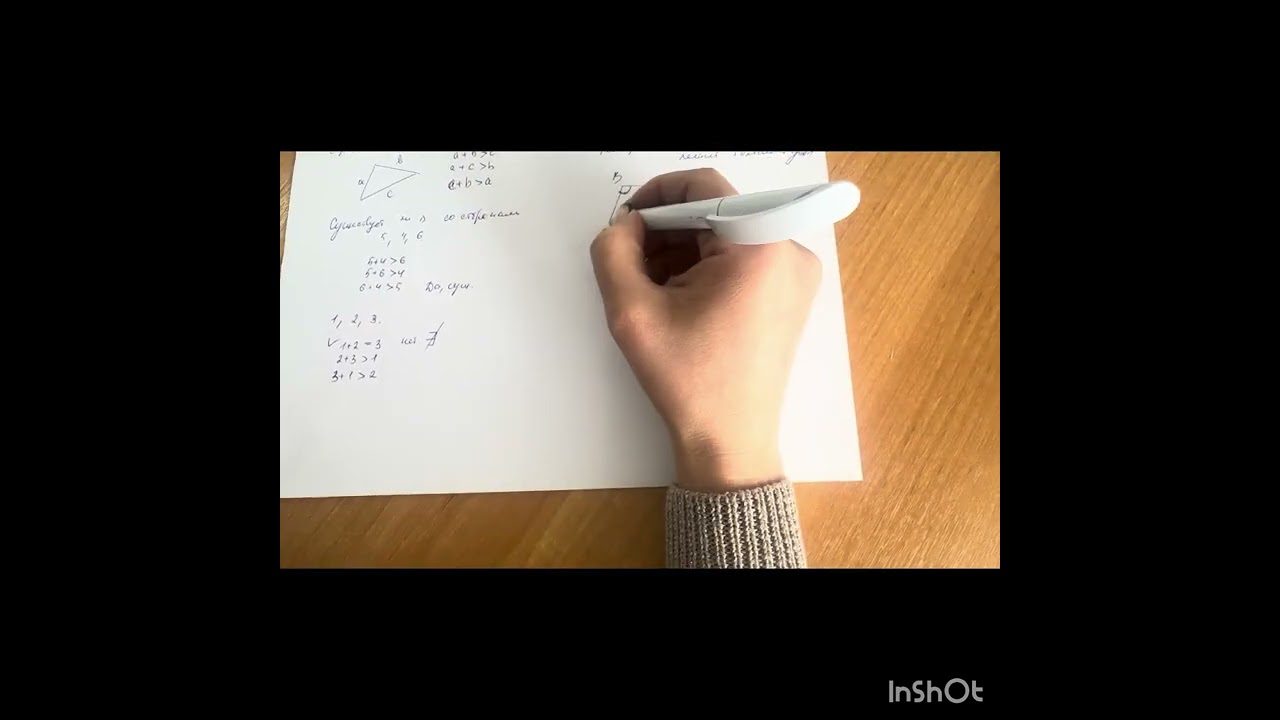 a+b>c
a+c>b
c+b>a
b
a
c
Существует ли Δ со сторонами
5, 4, 6
5+4>6
5+6>4
6+4>5 Да, сущ.
1, 2, 3.
✓ 1+2=3 нет ∄
2+3>1
3+1>2
B
InShOt